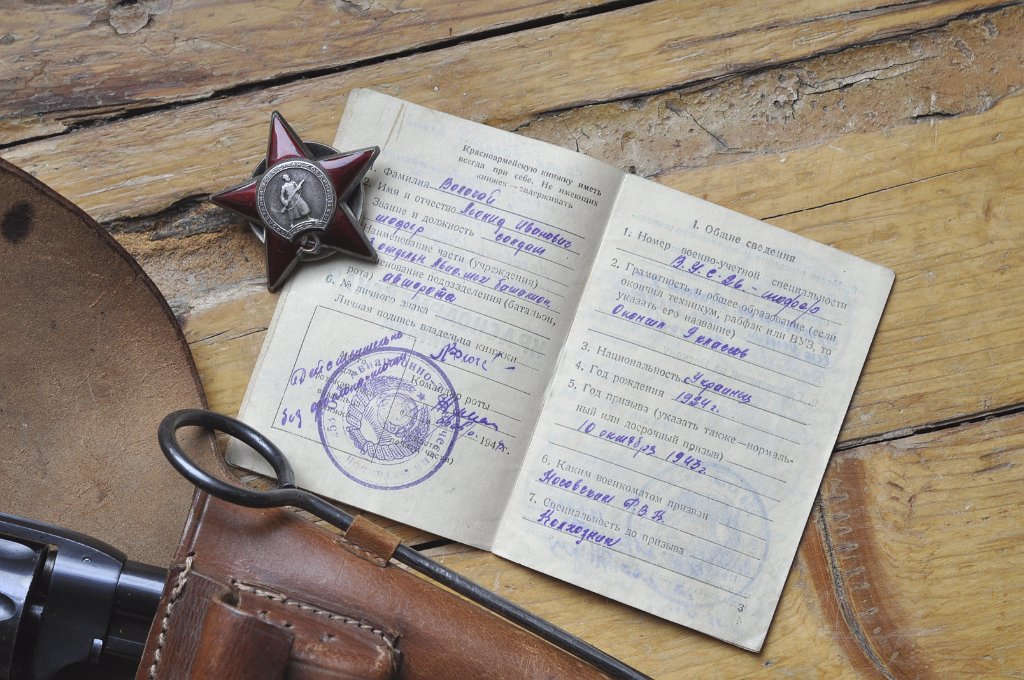 Красноармейскую книжку иметь
всегда при себе. Не имеющих
книжек — задерживать
1. Фамилия Вологай
2. Имя и отчество Леонид Иванович
Звание и должность солдат
шофер
Наименование части (учреждения)
батальон
наименование подразделения (батальон,
рота) авторота
6. № личного знака
Личная подпись владельца книжки
Действительно
без
Командир роты
194
I. Общие сведения
1. Номер военно-учетной специальности
В.У.С-26.-шофер
2. Грамотность и общее образование (если
окончил техникум, рабфак или ВУЗ, то
указать его название)
Окончил 7 классов
3. Национальность Украинец
4. Год рождения 1924 г.
5. Год призыва (указать также — нормаль-
ный или досрочный призыв)
10 октября 1943г.
6. Каким военкоматом призван
Носовским Р.В.К.
7. Специальность до призыва
Колхозник
3